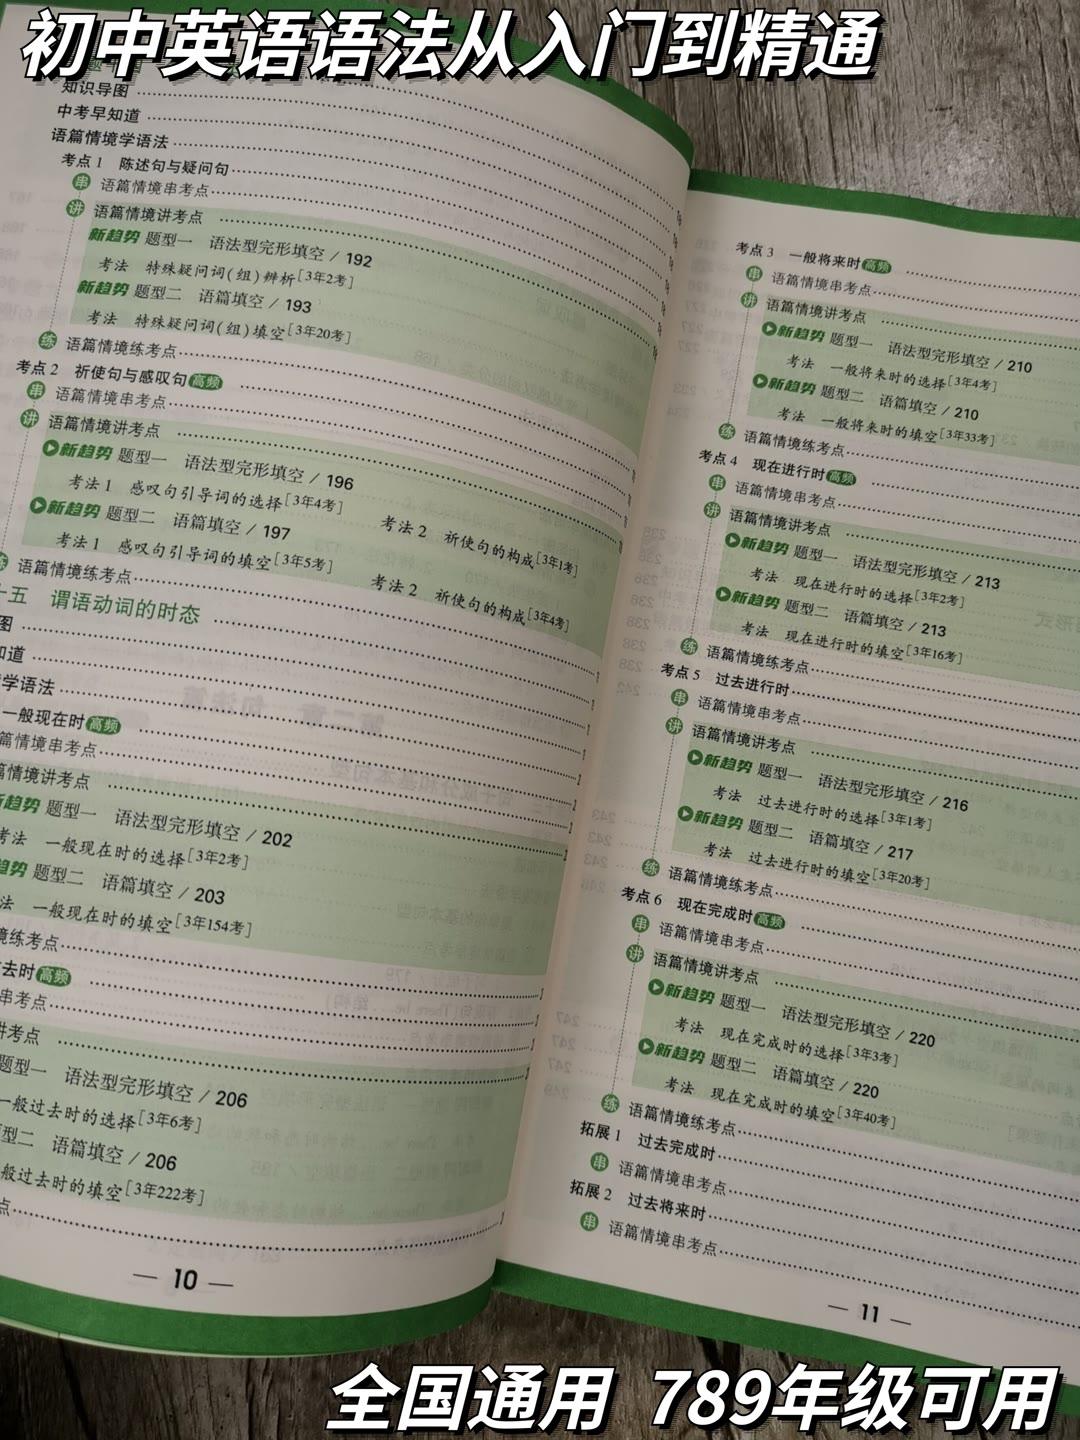 初中英语语法从入门到精通
知识导图
中考早知道
语篇情境学语法
考点1 陈述句与疑问句
串 语篇情境串考点
讲 语篇情境讲考点
新趋势 题型一 语法型完形填空 / 192
考法 特殊疑问词(组)辨析[3年2考]
新趋势 题型二 语篇填空 / 193
考法 特殊疑问词(组)填空[3年20考]
练 语篇情境练考点
考点2 祈使句与感叹句 高频
串 语篇情境串考点
讲 语篇情境讲考点
新趋势 题型一 语法型完形填空 / 196
考法1 感叹句引导词的选择[3年4考] 考法2 祈使句的构成[3年1考]
新趋势 题型二 语篇填空 / 197
考法1 感叹句引导词的填空[3年5考] 考法2 祈使句的构成[3年4考]
练 语篇情境练考点
十五 谓语动词的时态
图
知道
学语法
一般现在时 高频
篇情境串考点
篇情境讲考点
新趋势 题型一 语法型完形填空 / 202
考法 一般现在时的选择[3年2考]
趋势 题型二 语篇填空 / 203
法 一般现在时的填空[3年154考]
境练考点
去时 高频
串考点
讲考点
题型一 语法型完形填空 / 206
一般过去时的选择[3年6考]
型二 语篇填空 / 206
般过去时的填空[3年222考]
点
— 10 —
考点3 一般将来时 高频
串 语篇情境串考点
讲 语篇情境讲考点
新趋势 题型一 语法型完形填空 / 210
考法 一般将来时的选择[3年4考]
新趋势 题型二 语篇填空 / 210
考法 一般将来时的填空[3年33考]
练 语篇情境练考点
考点4 现在进行时 高频
串 语篇情境串考点
讲 语篇情境讲考点
新趋势 题型一 语法型完形填空 / 213
考法 现在进行时的选择[3年2考]
新趋势 题型二 语篇填空 / 213
考法 现在进行时的填空[3年16考]
练 语篇情境练考点
考点5 过去进行时
串 语篇情境串考点
讲 语篇情境讲考点
新趋势 题型一 语法型完形填空 / 216
考法 过去进行时的选择[3年1考]
新趋势 题型二 语篇填空 / 217
考法 过去进行时的填空[3年20考]
练 语篇情境练考点
考点6 现在完成时 高频
串 语篇情境串考点
讲 语篇情境讲考点
新趋势 题型一 语法型完形填空 / 220
考法 现在完成时的选择[3年3考]
新趋势 题型二 语篇填空 / 220
考法 现在完成时的填空[3年40考]
练 语篇情境练考点
拓展1 过去完成时
串 语篇情境串考点
拓展2 过去将来时
串 语篇情境串考点
— 11 —
全国通用 789年级可用